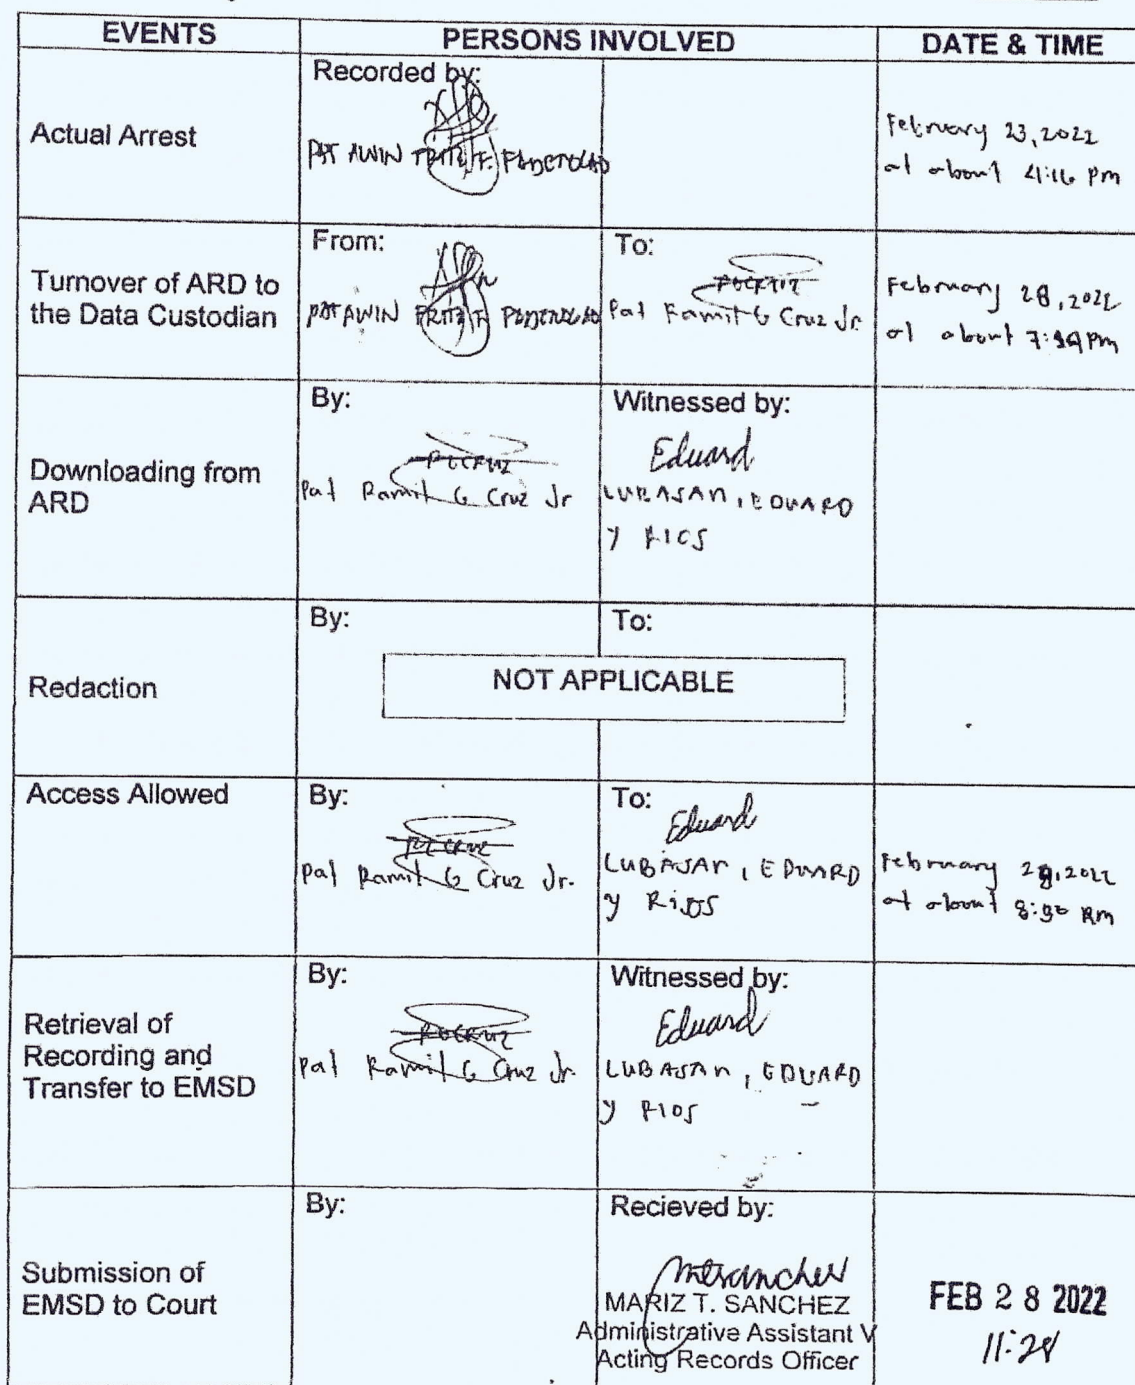 EVENTS
PERSONS INVOLVED
DATE & TIME
Actual Arrest
Recorded by:
PAT AWIN FRITZ F.
February 23, 2022
at about 4:16 pm
Turnover of ARD to
the Data Custodian
From:
PAT AWIN FRITZ F.
To:
Pat Ramil G Cruz Jr.
February 28, 2022
at about
Downloading from
ARD
By:
Pat Ramil G Cruz Jr
Witnessed by:
Eduard
LUBASAN, EDUARD
y RIOS
Redaction
By:
To:
NOT APPLICABLE
Access Allowed
By:
Pat Ramil G Cruz Jr.
To:
Eduard
LUBASAN, EDUARD
y Rios
February 28, 2022
at about
Retrieval of
Recording and
Transfer to EMSD
By:
Pat Ramil G Cruz Jr.
Witnessed by:
Eduard
LUBASAN, EDUARD
y RIOS
Submission of
EMSD to Court
By:
Recieved by:
mtsanchez
MARIZ T. SANCHEZ
Administrative Assistant V
Acting Records Officer
FEB 28 2022